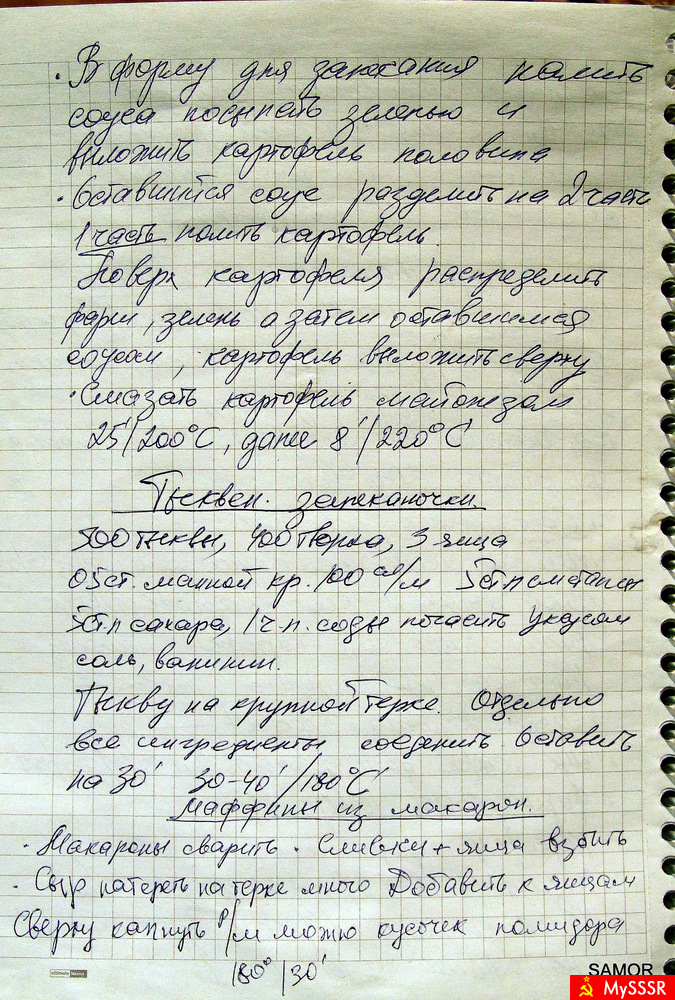 · В форму для запекания налить
соуса посыпать зеленью и
выложить картофель половина
· Оставшийся соус разделить на 2 части
1 часть полить картофель.
Поверх картофеля распределить
фарш, зелень а затем оставшимся
соусом, картофель выложить сверху
· Смазать картофель майонезом
25'/200°С, далее 8'/220°С
Тыквен. запеканочки.
500 тыквы, 400 творга, 3 яйца
05 ст. манной кр. 100 сл/м 5 ст л сметаны
5 ст л сахара, 1 ч.л. соды погасить уксусом
соль, ванилин.
Тыкву на крупной терке. Отдельно
все ингредиенты соеденить Оставить
на 30' 30-40'/180°С
Маффины из макарон.
· Макароны сварить · Сливки + яйца взбить
· Сыр натереть на терке много Добавить к яйцам
Сверху капнуть р/м можно кусочек помидора
180°/30'
ultimate basics
SAMOR
MySSSR